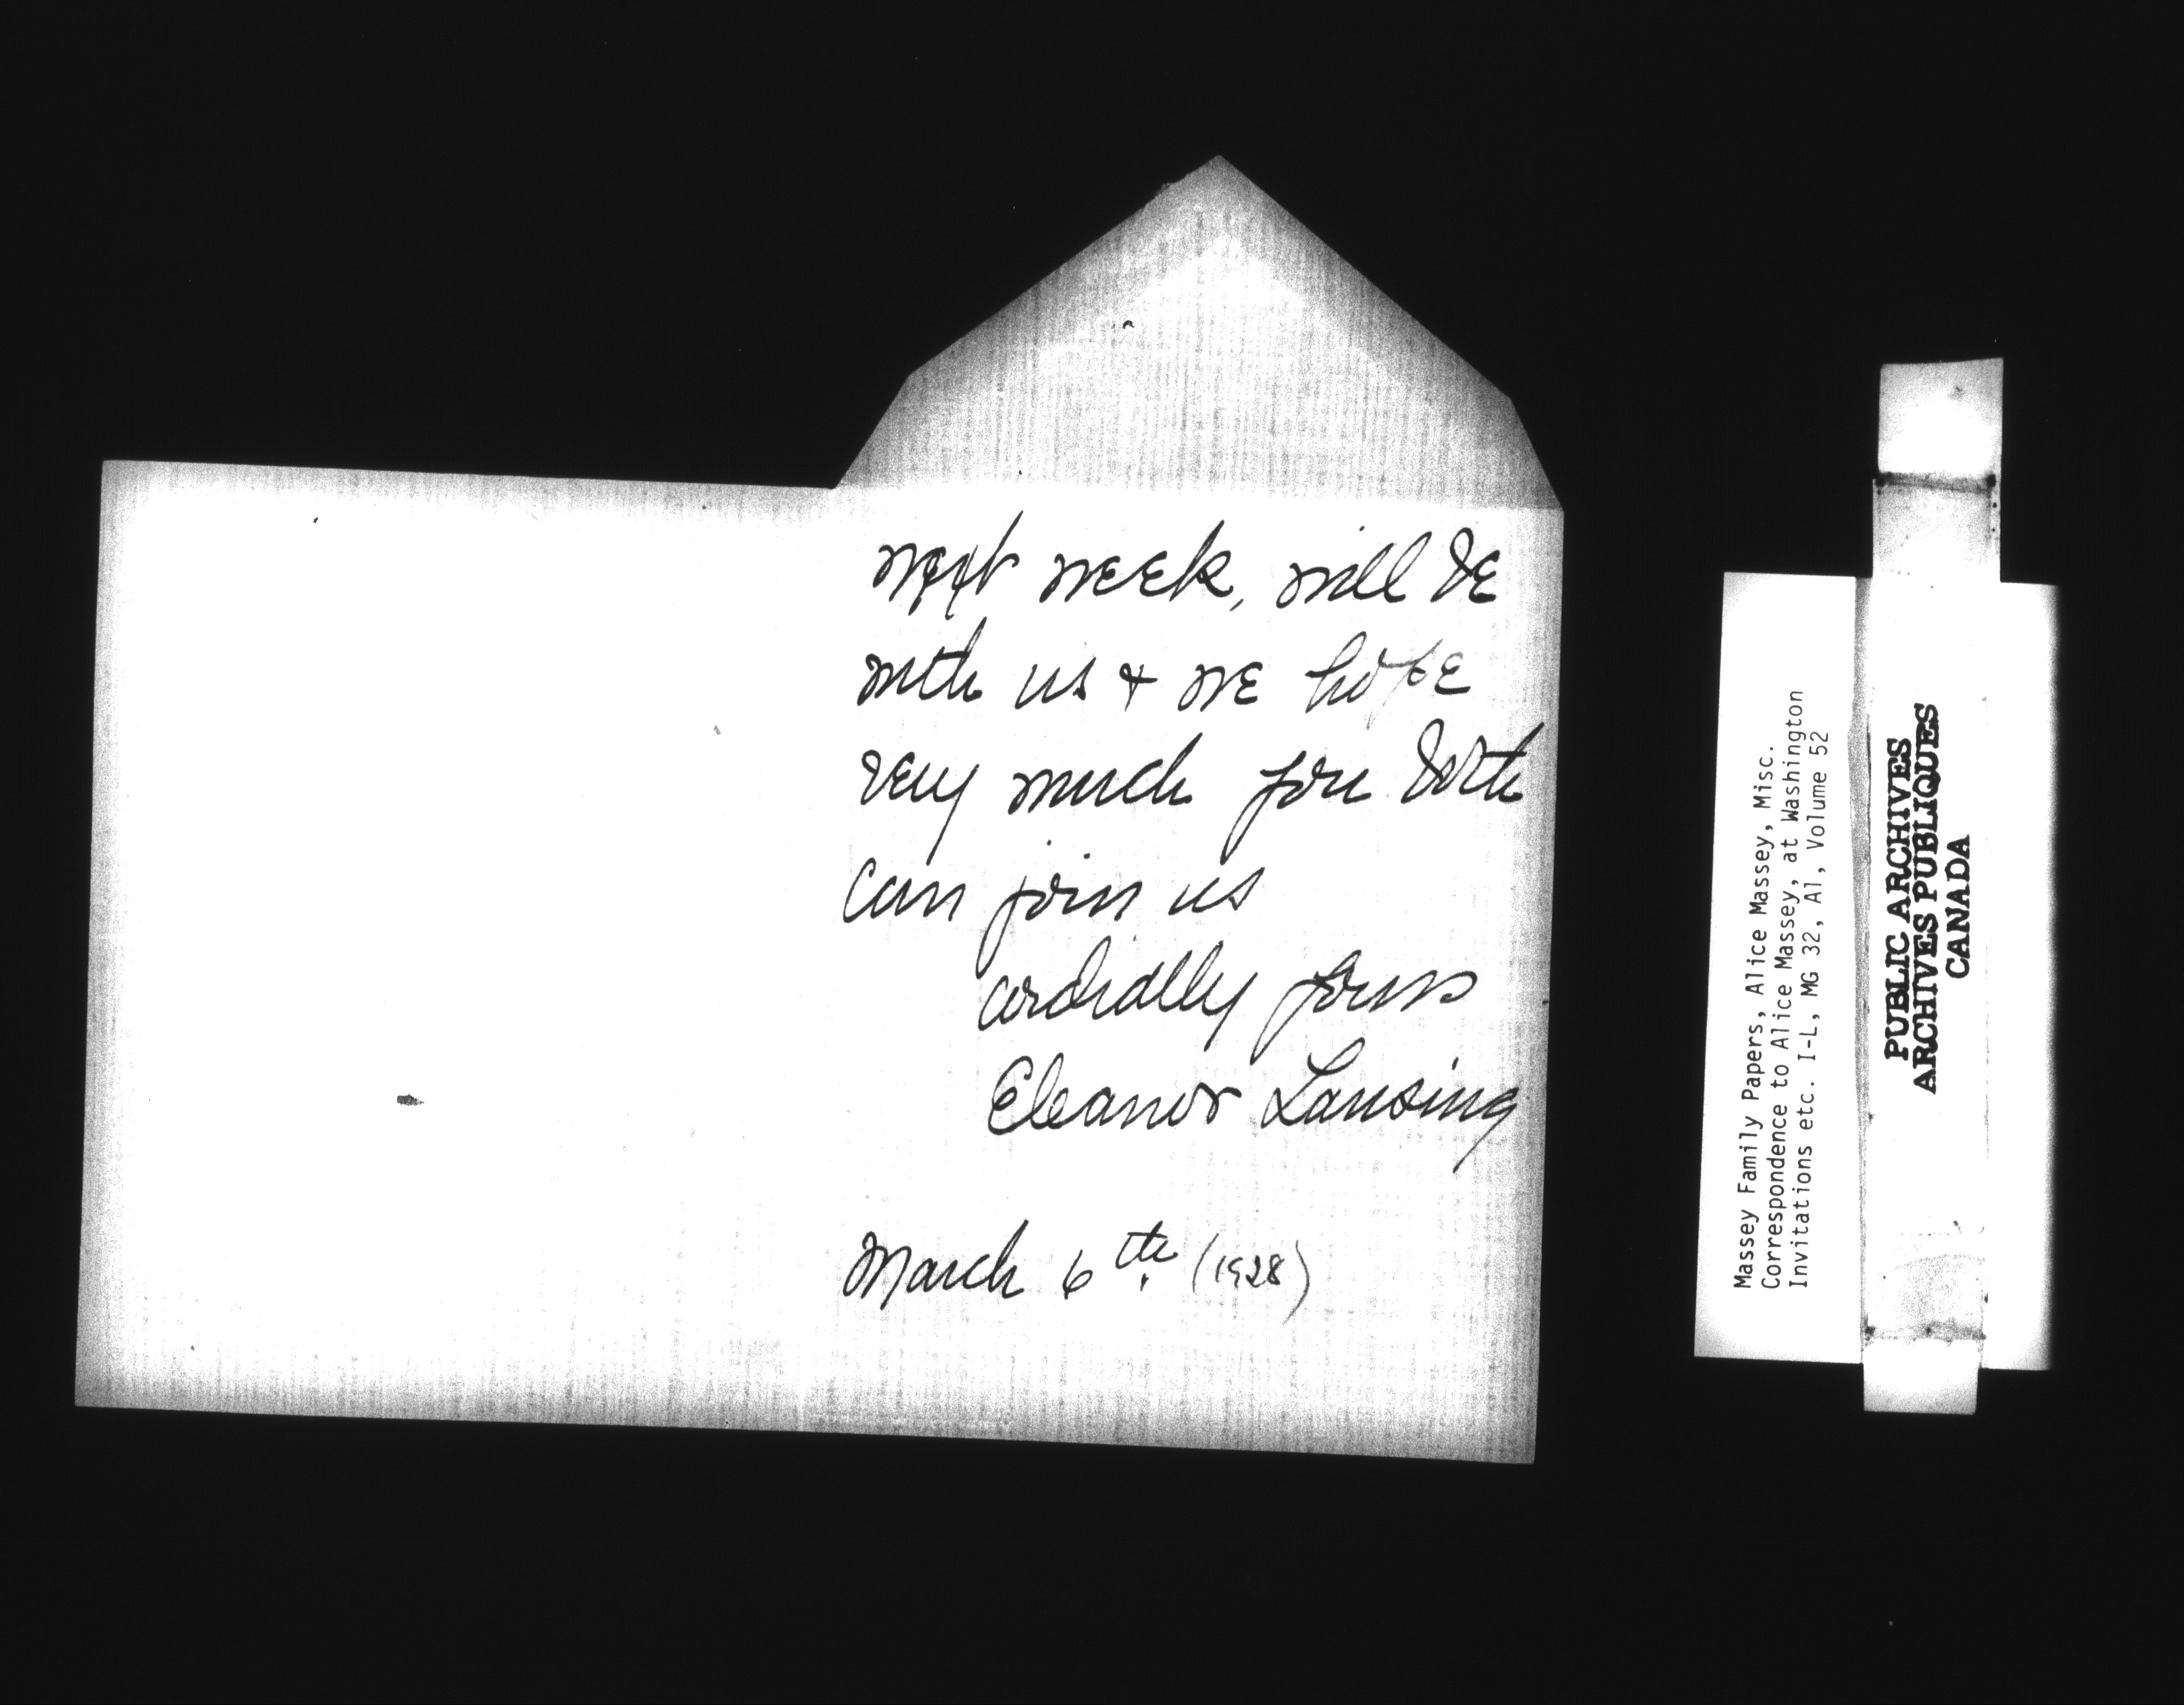 next week, will be
with us & we hope
very much you both
can join us
cordially yours
Eleanor Lansing
March 6th (1928)
Massey Family Papers, Alice Massey, Misc.
Correspondence to Alice Massey, at Washington
Invitations etc. I-L, MG 32, A1, Volume 52
PUBLIC ARCHIVES
ARCHIVES PUBLIQUES
CANADA